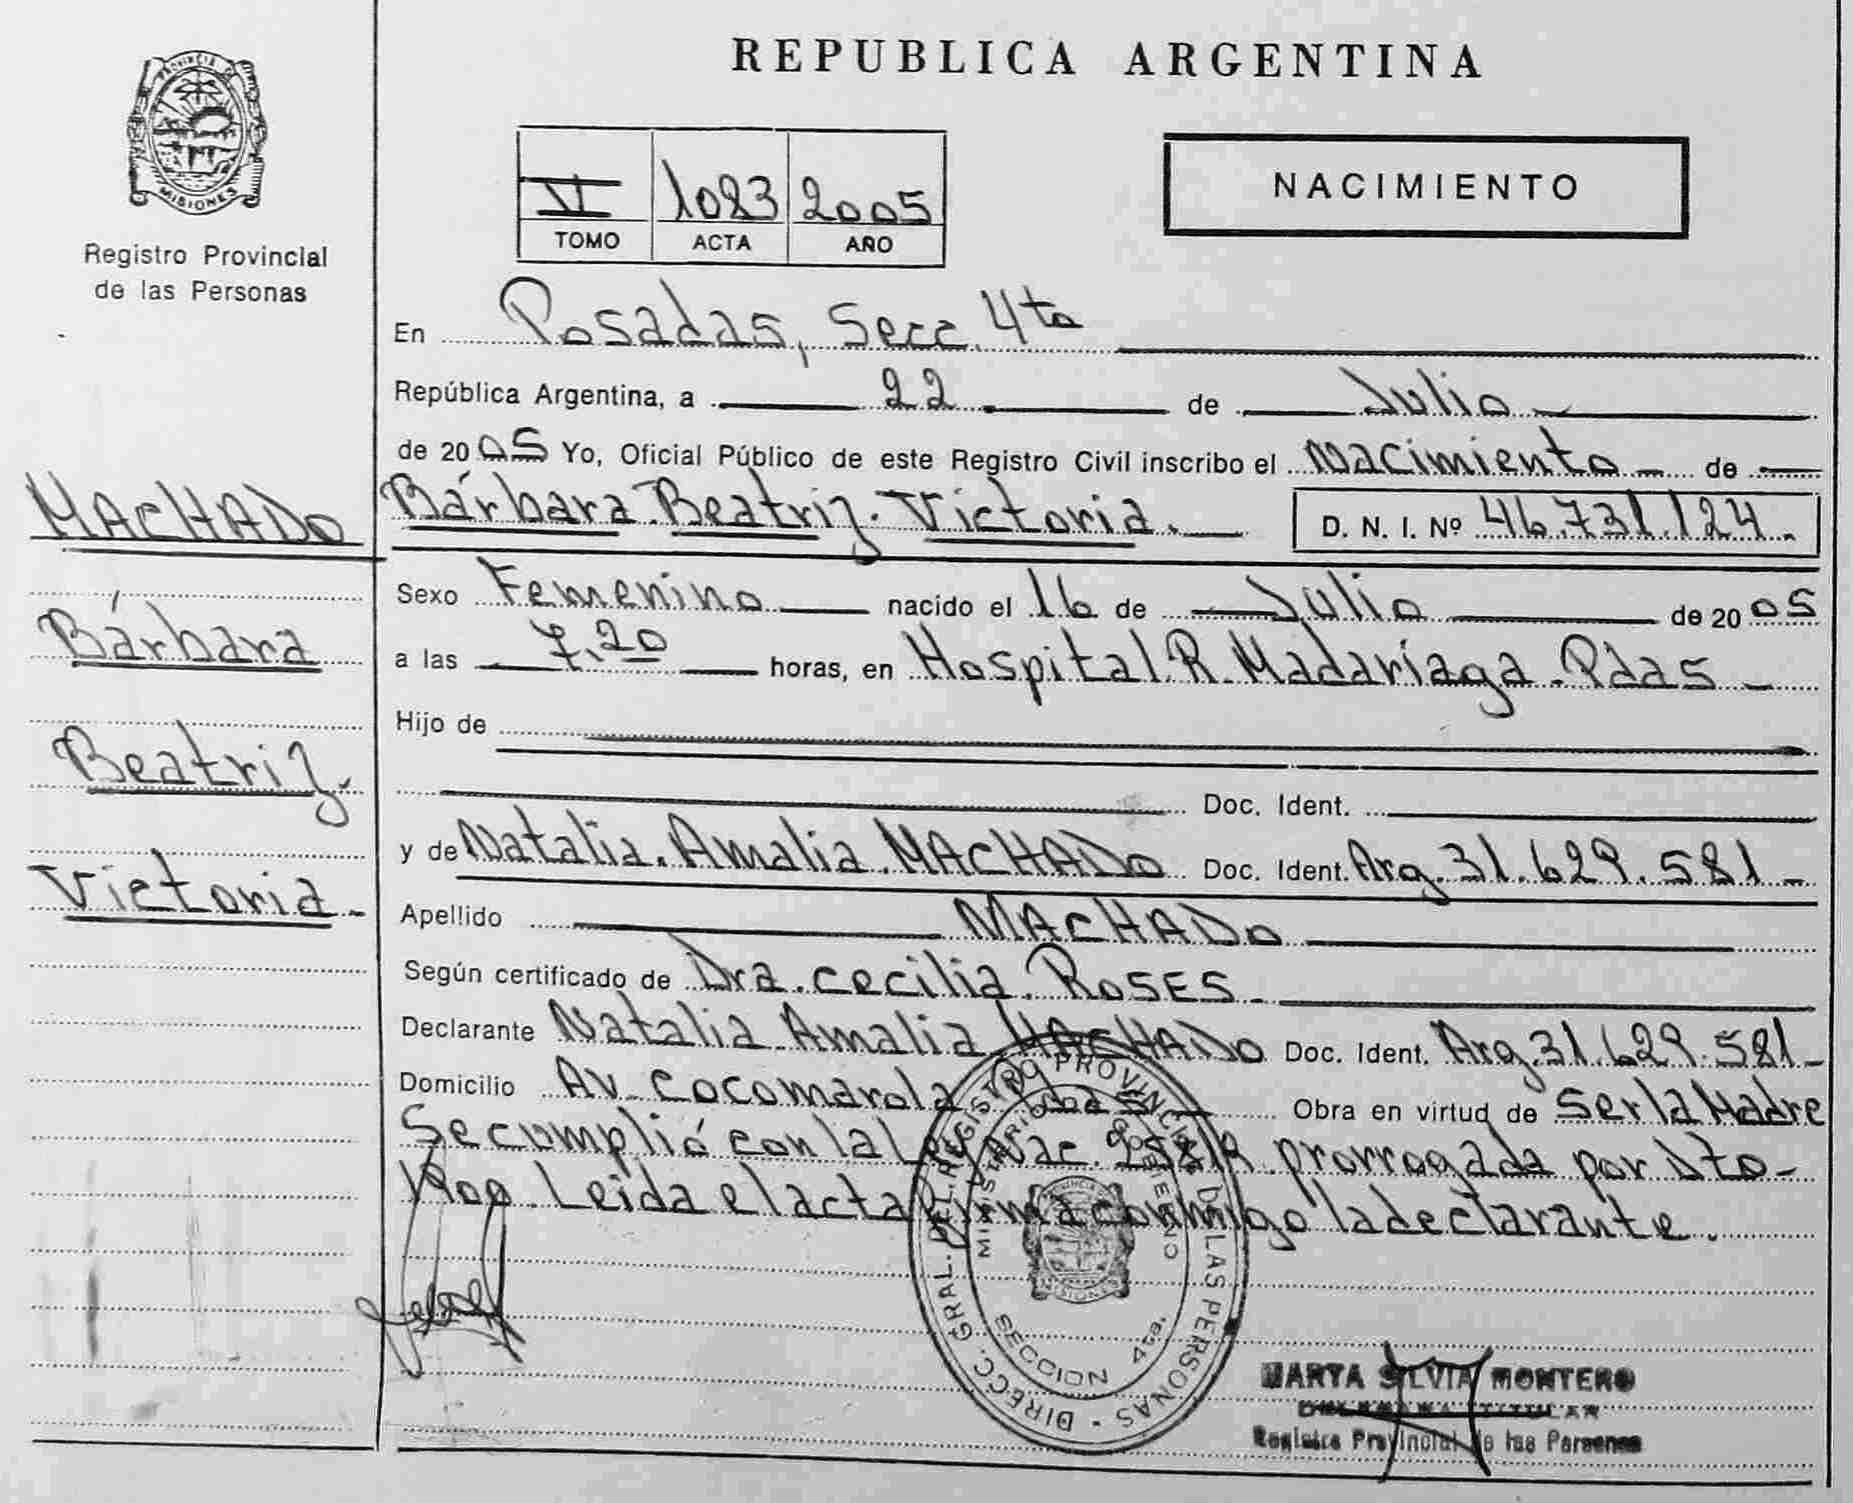 REPUBLICA ARGENTINA
PROVINCIA DE
MISIONES
Registro Provincial
de las Personas
VI 1083 2005
TOMO ACTA AÑO
NACIMIENTO
En Posadas, Secc. 4ta
República Argentina, a 22 de Julio
de 2005 Yo, Oficial Público de este Registro Civil inscribo el Nacimiento de
Bárbara Beatriz Victoria. D. N. I. Nº 46.731.124.
MACHADO
Bárbara
Beatriz.
Victoria.
Sexo Femenino nacido el 16 de Julio de 2005
a las 7.20 horas, en Hospital R. Madariaga - Pdas
Hijo de
Doc. Ident.
y de Natalia Amalia MACHADO Doc. Ident. Arg. 31.629.581
Apellido MACHADO
Según certificado de Dra. Cecilia ROSES
Declarante Natalia Amalia MACHADO Doc. Ident. Arg. 31.629.581
Domicilio Av. Cocomarola Pdas Obra en virtud de Ser la Madre
Se cumplió con la Ley Nac. prorrogada por Dto-
Leida el acta firma conmigo la declarante.
DIRECC. GRAL. DEL REGISTRO PROVINCIAL DE LAS PERSONAS
MINISTERIO DE GOBIERNO
SECCION 4ta.
MISIONES
MARTA SILVIA MONTERO
TITULAR
Registro Provincial de las Personas